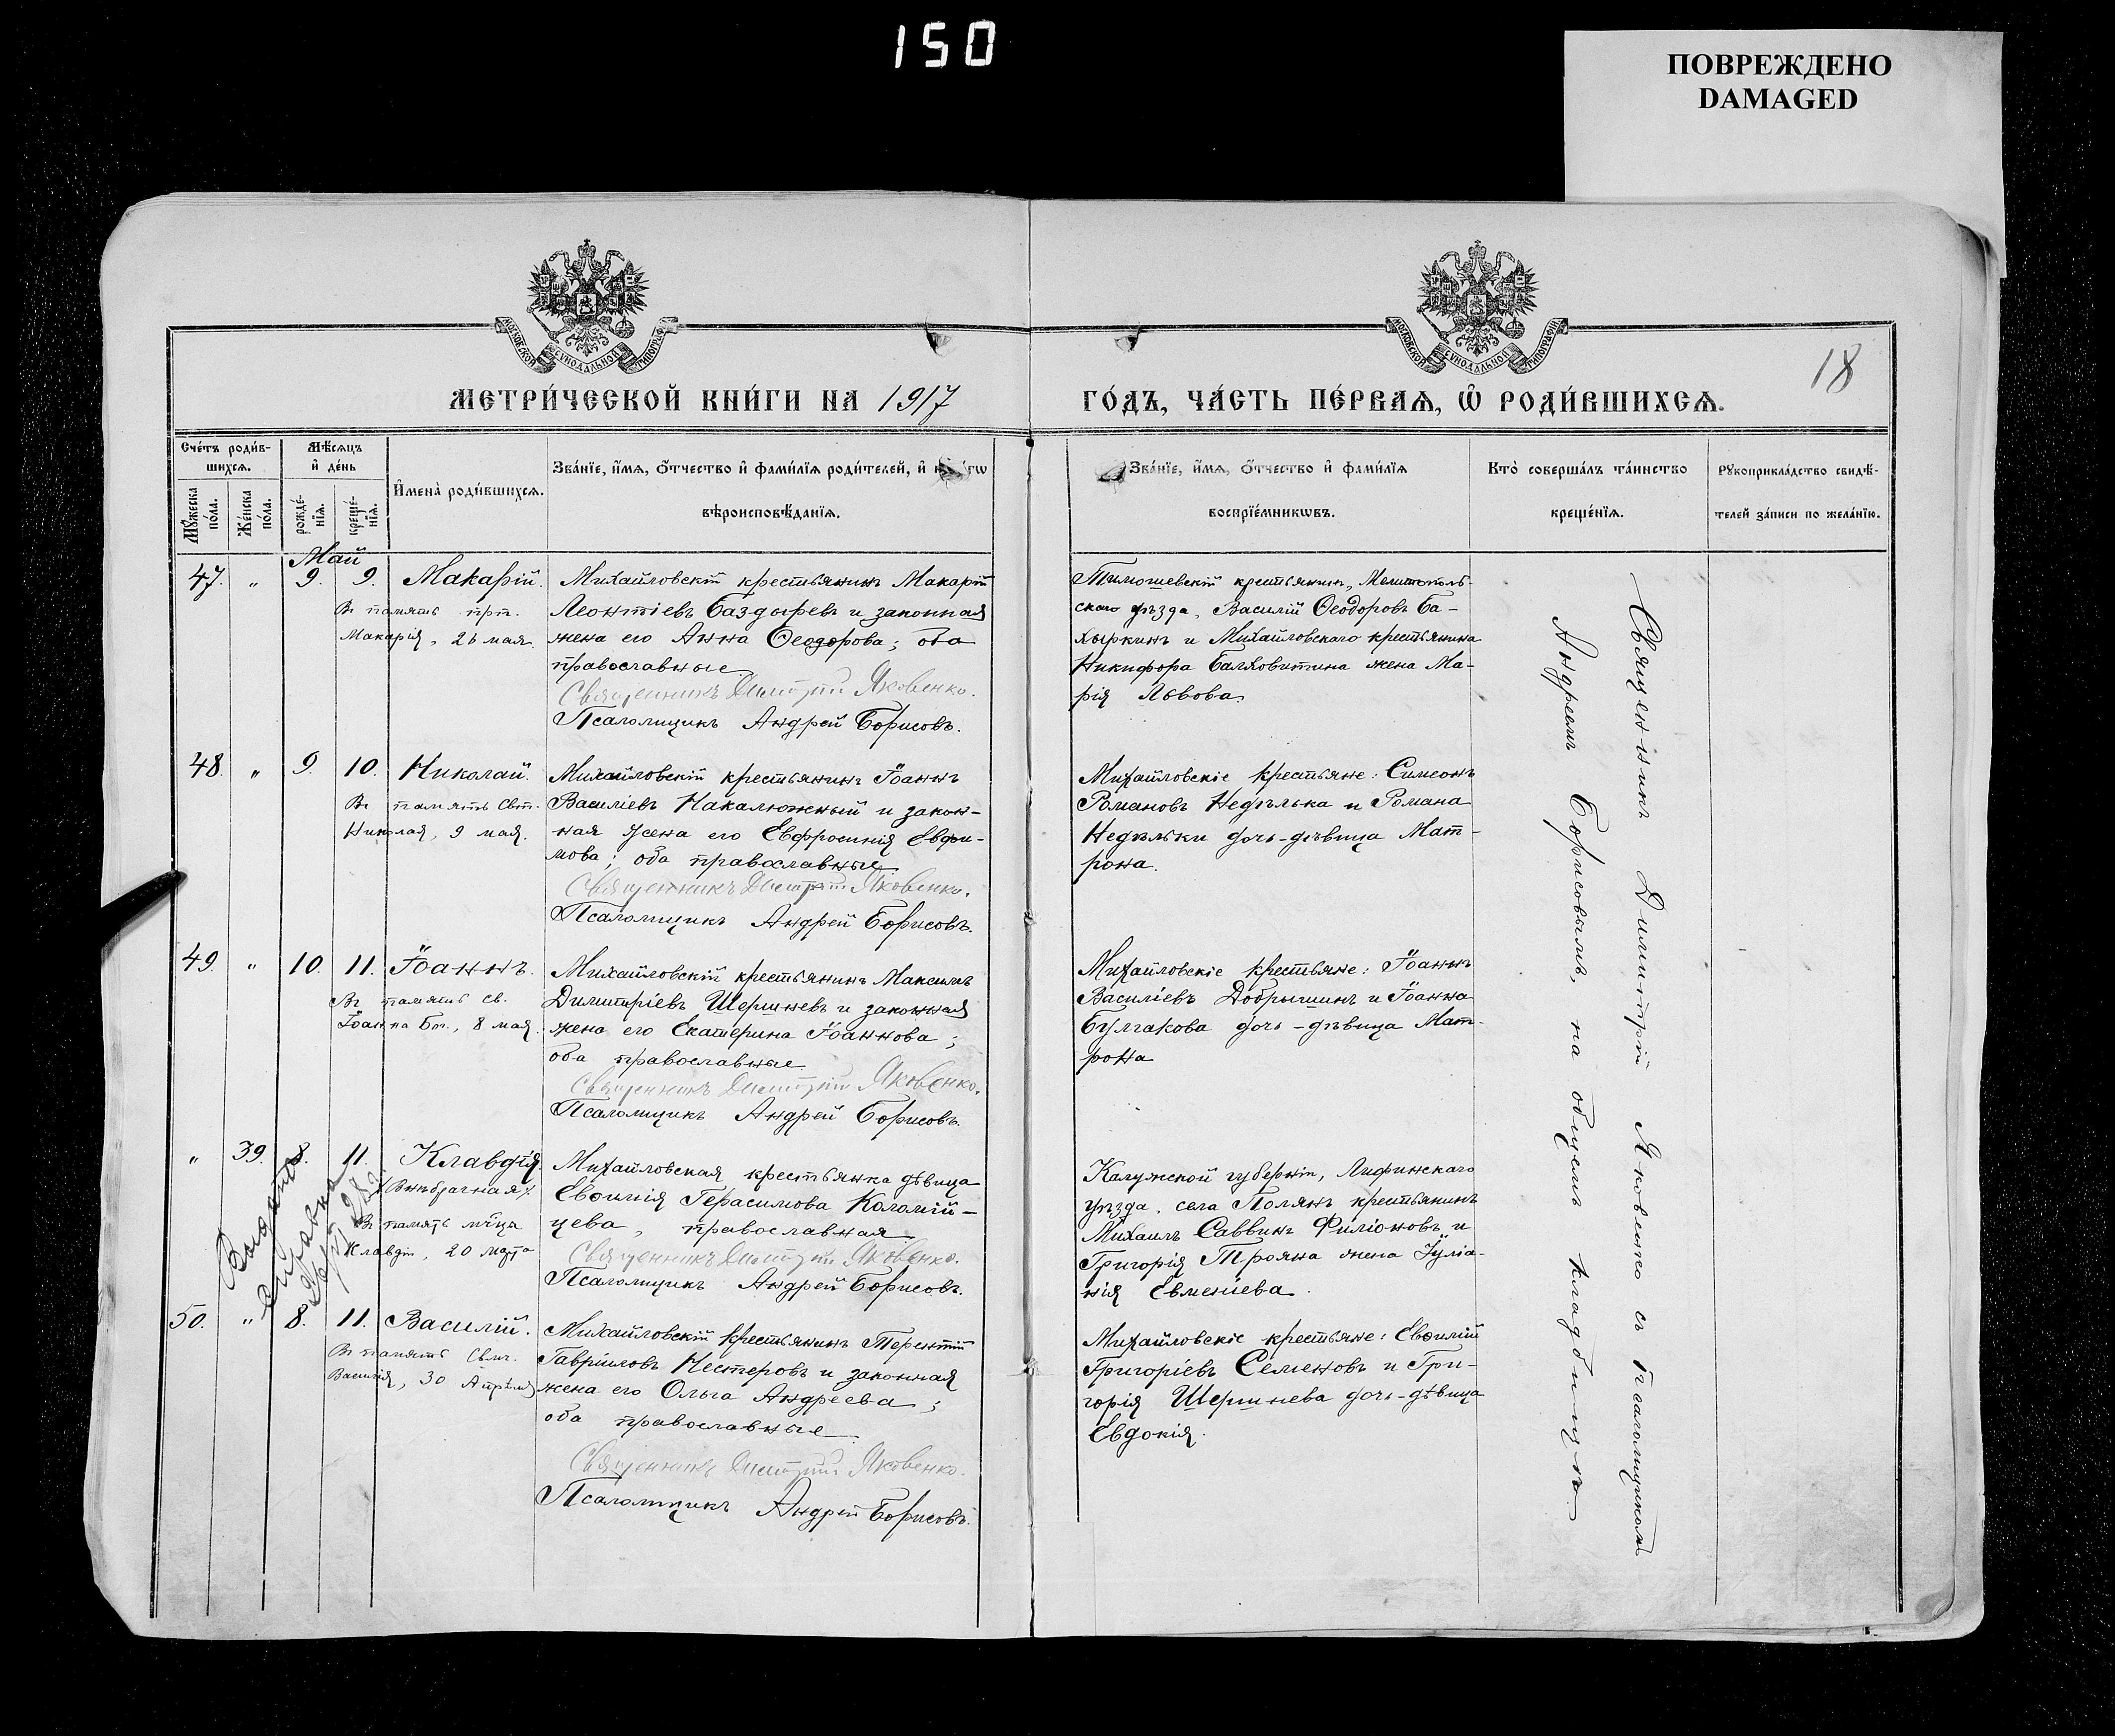 150
ПОВРЕЖДЕНО
DAMAGED
МОСКОВСКОЙ СѴНОДАЛЬНОЙ ТИПОГРАФІИ
МОСКОВСКОЙ СѴНОДАЛЬНОЙ ТИПОГРАФІИ
18
МЕТРИ́ЧЕСКОЙ КНИ́ГИ НА 1917
ГО́ДЪ, ЧА́СТЬ ПЕ́РВАѦ, Ѡ҆ РОДИ́ВШИХСѦ.
Сче́тъ роди́в-
шихсѧ.
Мѣ́сѧцъ
и҆ де́нь
Мꙋ́жеска
по́ла.
Же́нска
по́ла.
рожде́-
нїѧ.
креще́-
нїѧ.
И҆мена̀ роди́вшихсѧ.
Зва́нїе, и҆́мѧ, ѻ҆́тчество и҆ фами́лїѧ роди́телей, и҆
вѣроисповѣ́данїѧ.
Зва́нїе, и҆́мѧ, ѻ҆́тчество и҆ фами́лїѧ
воспрїе́мникѡвъ.
Кто̀ соверша́лъ та́инство
креще́нїѧ.
Рꙋкоприкла́дство свидѣ́-
телей за́писи по жела́нїю.
Май
47. " 9. 9. Макарій.
Въ память прп.
Макарія, 26 мая.
Михайловскій крестьянинъ Макарій
Леонтіевъ Баздыревъ и законная
жена его Анна Ѳеодорова; оба
православные
Священникъ Димитрій Яковенко.
Псаломщикъ Андрей Борисовъ.
Тимошевскій крестьянинъ, Мелитополь-
скаго уѣзда, Василій Ѳеодоровъ Ба-
хыркинъ и Михайловскаго крестьянина
Никифора Балховитина жена Ма-
рія Львова.
48. " 9. 10. Николай.
Въ память Свт.
Николая, 9 мая.
Михайловскій крестьянинъ Іоаннъ
Василіевъ Накалюжный и закон-
ная жена его Евфросинія Евфи-
мова; оба православные
Священникъ Димитрій Яковенко.
Псаломщикъ Андрей Борисовъ.
Михайловскіе крестьяне: Симеонъ
Романовъ Недѣлька и Романа
Недѣльки дочь-дѣвица Мат-
рона.
49. " 10. 11. Іоаннъ.
Въ память св.
Іоанна Бог., 8 мая.
Михайловскій крестьянинъ Максимъ
Димитріевъ Шершневъ и законная
жена его Екатерина Іоаннова;
оба православные
Священникъ Димитрій Яковенко.
Псаломщикъ Андрей Борисовъ.
Михайловскіе крестьяне: Іоаннъ
Василіевъ Добрышинъ и Іоанна
Булгакова дочь-дѣвица Мат-
рона
" 39. 8. 11. Клавдія
/Внѣбрачная/.
Въ память м͞ца
Клавдіи, 20 марта
Выдана
справка
Михайловская крестьянка дѣвица
Евѳимія Герасимова Коломій-
цева, православная
Священникъ Димитрій Яковенко.
Псаломщикъ Андрей Борисовъ.
Калужской губерніи, Лифинскаго
уѣзда, села Полянъ крестьянинъ
Михаилъ Саввинъ Филіоновъ и
Григорія Трояна жена Іуліа-
нія Евменіева.
50. " 8. 11. Василій.
Въ память Свмч.
Василія, 30 Апрѣля
Михайловскій крестьянинъ Терентій
Гавріиловъ Нестеровъ и законная
жена его Ольга Андреева;
оба православные
Священникъ Димитрій Яковенко.
Псаломщикъ Андрей Борисовъ.
Михайловскіе крестьяне: Евѳимій
Григоріевъ Семеновъ и Гри-
горія Шершнева дочь-дѣвица
Евдокія.
Священникъ Димитрій Яковенко съ псаломщикомъ
Андреемъ Борисовымъ, на общемъ кладбищѣ